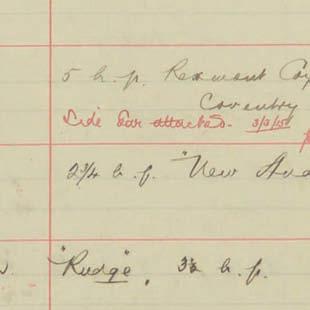 5 h.p. Rexmont Coy
Coventry
Side Car attached. 3/3/15
2¾ h.p. "New
"Rudge", 3½ h.p.